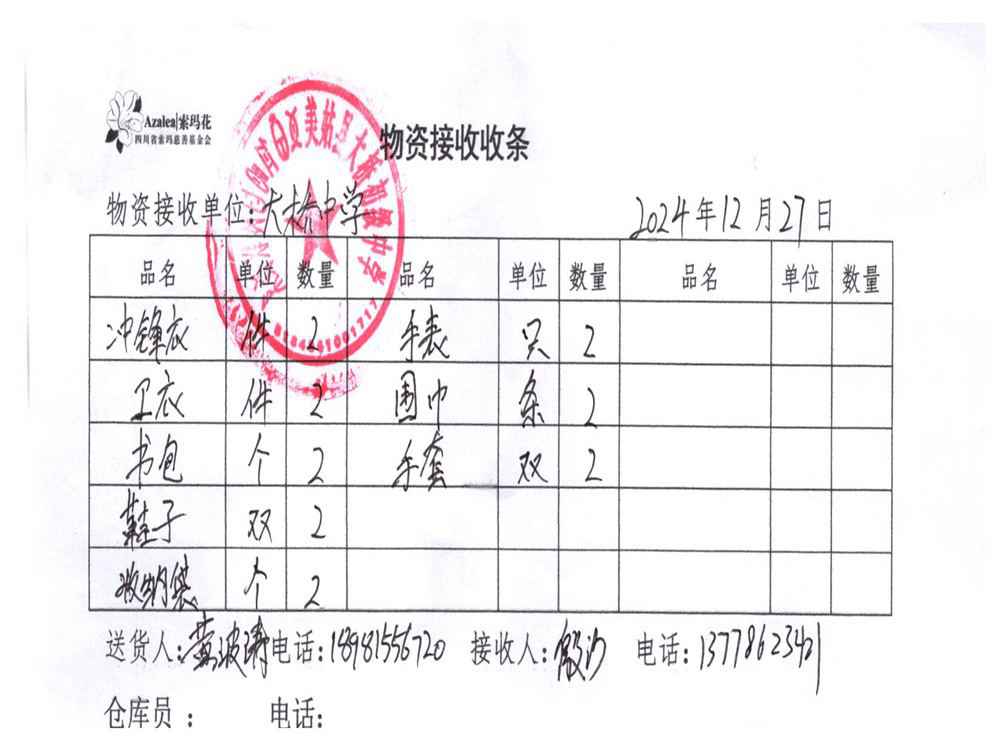 Azalea|索玛花
四川省索玛慈善基金会
物资接收收条
物资接收单位：大桥中学 2024年12月27日
美姑县大桥初级中学
品名 单位 数量 品名 单位 数量 品名 单位 数量
冲锋衣 件 2 手表 只 2
卫衣 件 2 围巾 条 2
书包 个 2 手套 双 2
鞋子 双 2
收纳袋 个 2
送货人：黄波涛 电话：18981556720 接收人： 电话：13778623421
仓库员 ： 电话：